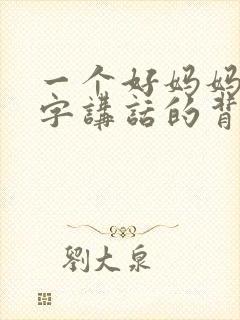 一个好妈妈
字講話的背
劉大泉